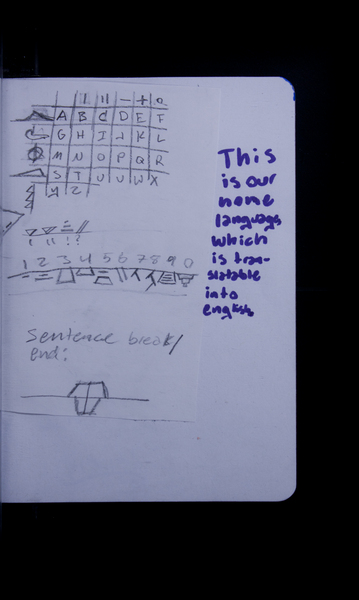 A B C D E F
G H I J K L
M N O P Q R
S T U V W X
Y Z
1 2 3 4 5 6 7 8 9 0
Sentence break/
end:
This
is our
nome
language
which
is tran-
slatable
into
english